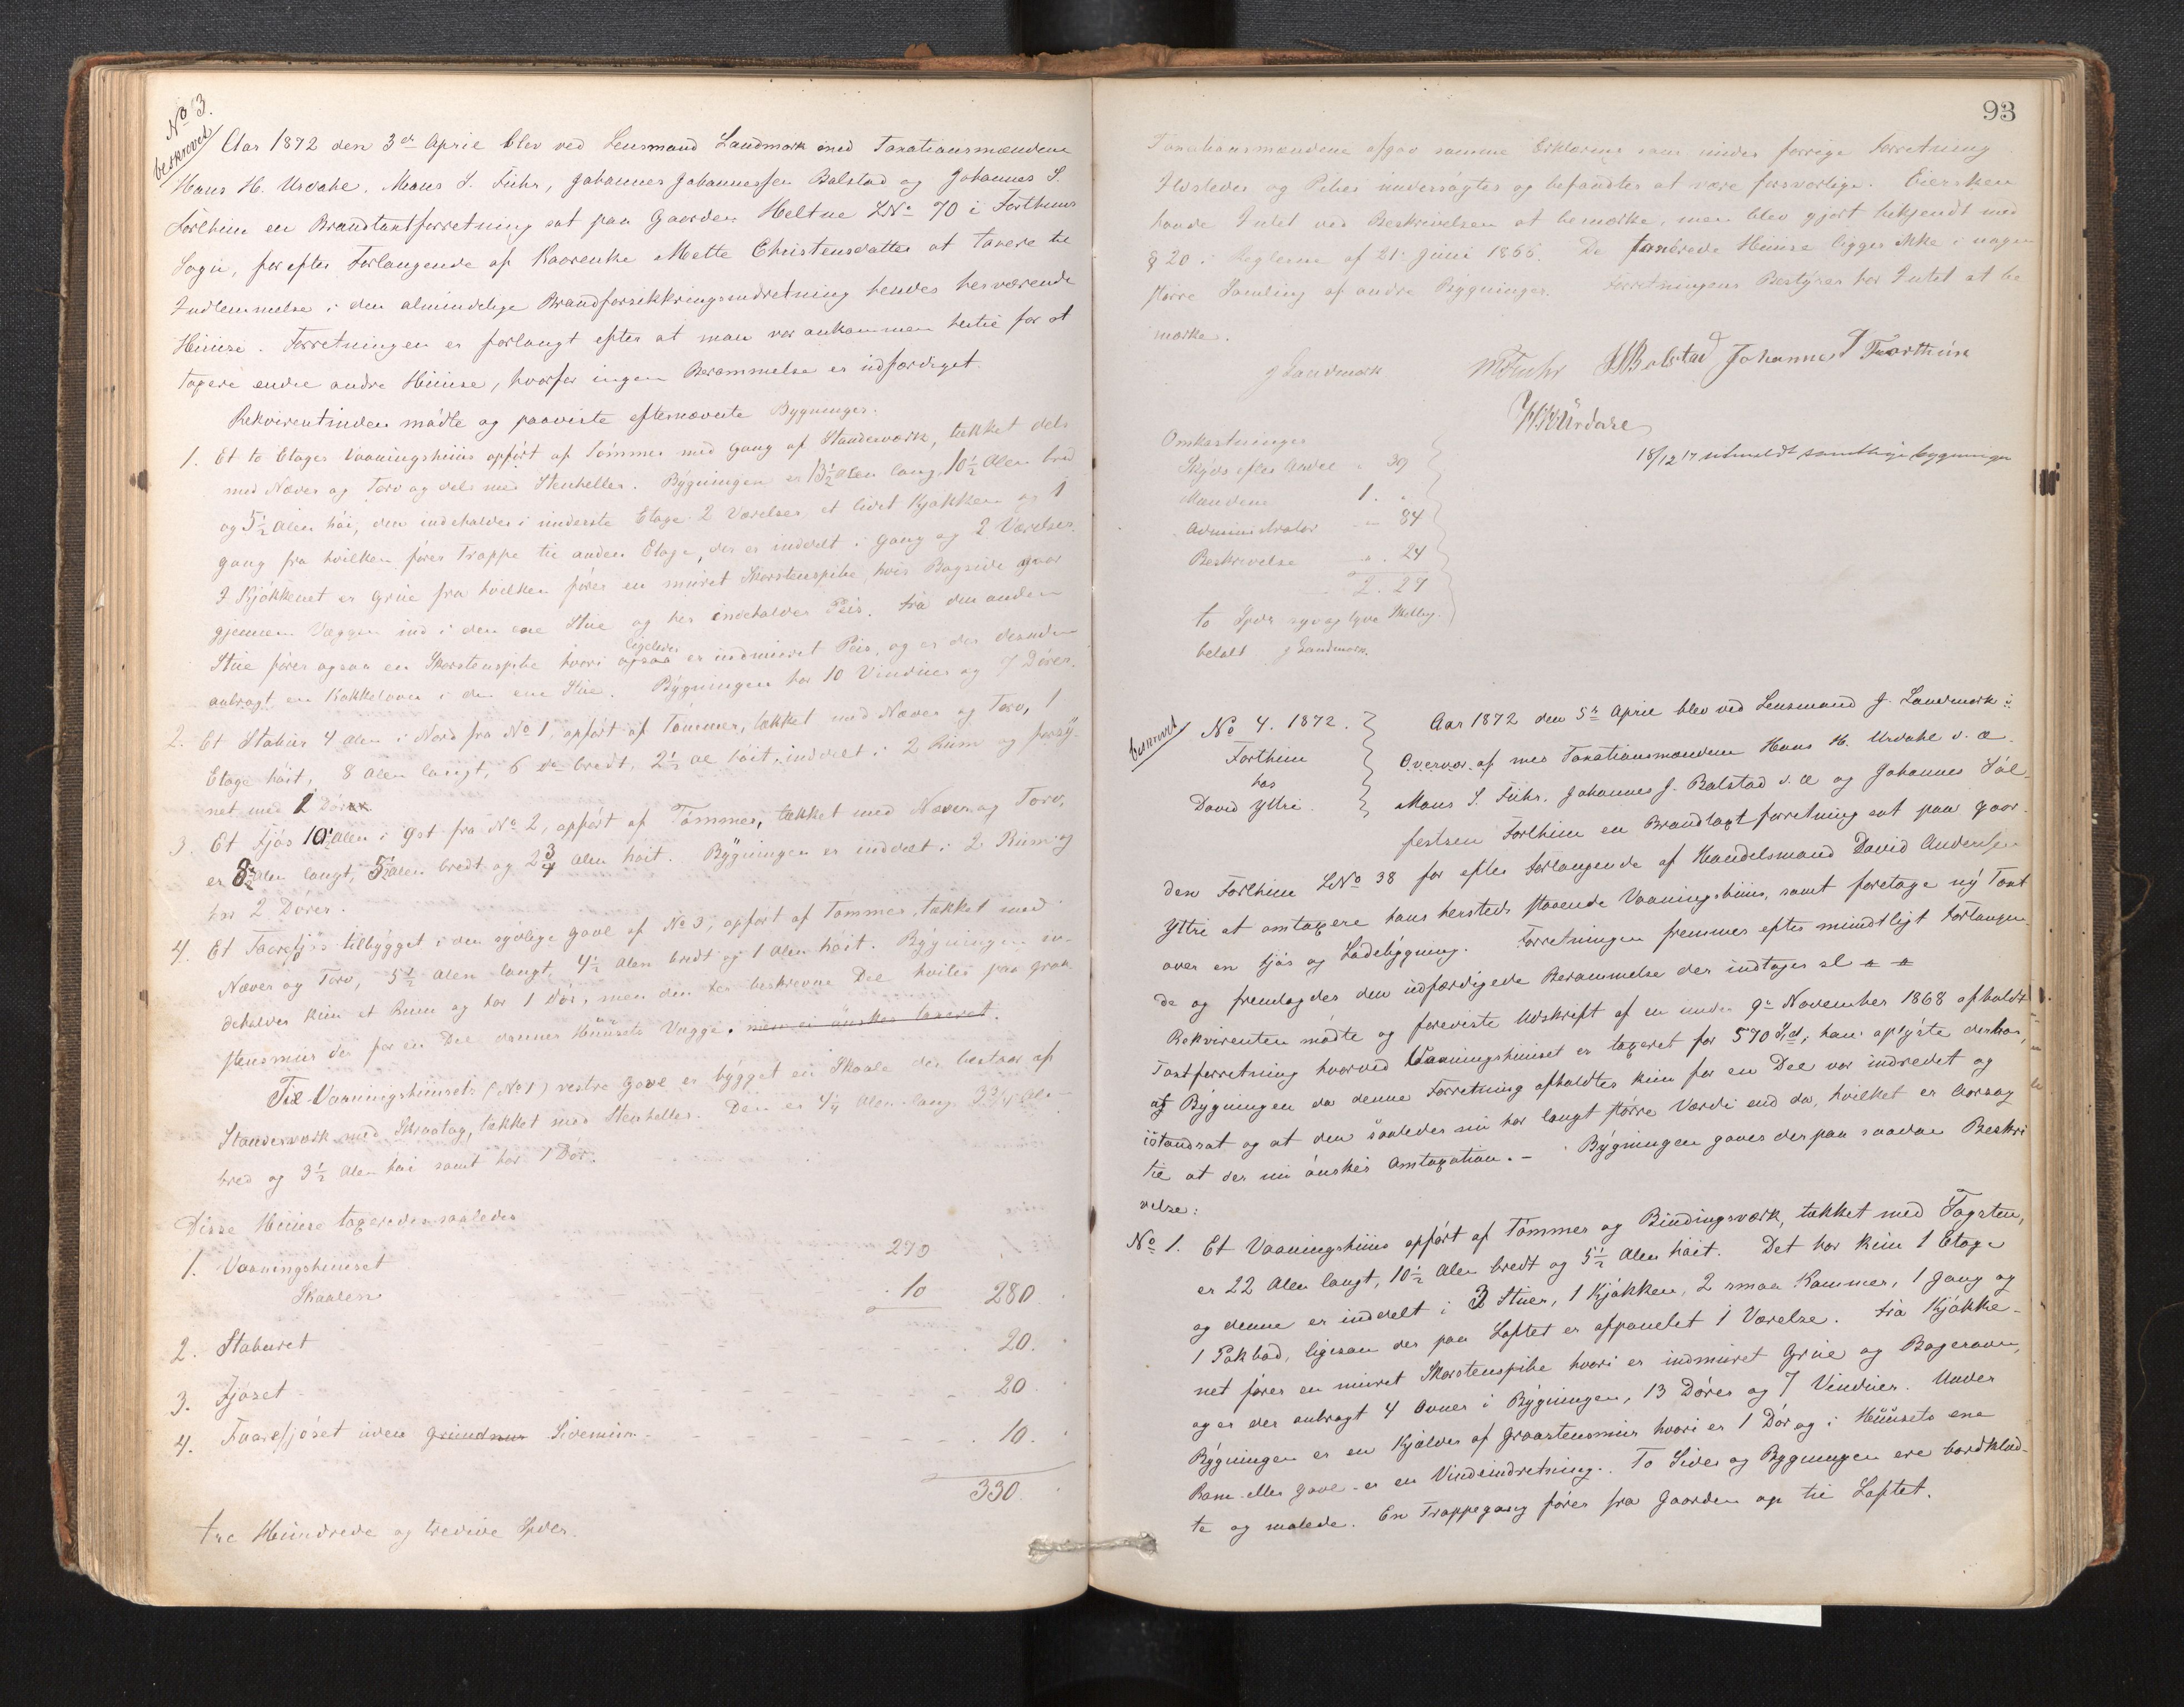 No 3.
beskrevet
Aar 1872 den 3die April blev ved Lensmand Landmark med Taxationsmændene
Hans H. Urdahl, Mons S. Fuhr, Johannes Johannessen Bolstad og Johannes S.
Forthun en Brandtaxtforretning sat paa Gaarden Heltne LNo 70 i Forthuns
Sogn, for efter Forlangende af Kaarenke Mette Christensdatter at taxere til
Indlemmelse i den almindelige Brandforsikkringsindretning hendes herværende
Huuse. Forretningen er forlangt efter at man var ankommen hertil for at
taxere endre andre Huuse, hvorfor ingen Berammelse er udfærdiget.
Rekvirentinden mødte og paaviste efternævnte Bygninger:
1. Et to Etages Vaaningshuus opført af Tømmer med Gang af Standerværk, tækket dels
med Næver og Torv og dels med Stenheller. Bygningen er 13½ Alen lang, 10½ Alen bred
og 5½ Alen høi, den indeholder i underste Etage 2 Værelser et lidet Kjøkken og 1
Gang fra hvilken fører Trappe til anden Etage, der er inddelt i Gang og 2 Værelser.
I Kjøkkenet er Grue fra hvilken fører en muret Skorstenspibe, hvis Bagside gaar
gjennem Væggen ind i den ene Stue og her indeholder Peis. Fra den anden
Stue fører ogsaa en Skorstenspibe hvori ogsaa ligeledes er indmuret Peis, og er der desuden
anbragt en Kakkelovn i den ene Stue. Bygningen har 10 Vinduer og 7 Dører.
2. Et Stabur 4 Alen i Nord fra No 1, opført af Tømmer, tækket med Næver og Torv, 1
Etage høit, 8 Alen langt, 6 do bredt, 2½ Al høit, inddelt i 2 Rum og forsy-
net med 2 Dører
3. Et Fjøs 10 Alen i Øst fra No 2, opført af Tømmer, tækket med Næver og Torv,
er 8½ Alen langt, 5½ Alen bredt og 2¾ Alen høit. Bygningen er inddelt i 2 Rum og
har 2 Dører.
4. Et Faarefjøs tilbygget i den sydlige Gavl af No 3, opført af Tømmer, tækket med
Næver og Torv, 5½ Alen langt, 4½ Alen bredt og 1 Alen høit. Bygningen in-
deholder kun et Rum og har 1 Dør, men den her beskrevne Del hviler paa Graa-
stensmur der for en Del danner Huusets Vægge. men ei ønskes taxeret.
Til Vaaningshuuset (No 1) vestre Gavl er bygget en Skaale der bestaar af
Standerværk med Skraatag, tækket med Stenheller. Den er 4¼ Alen lang 3¾ Alen
bred og 3½ Alen høi samt har 1 Dør.
Disse Huuse taxeredes saaledes
1. Vaaningshuuset 270
Skaalen 10 280
2. Staburet 20.
3. Fjøset 20
4. Faarefjøset uden Grundmur Sidemur 10.
330.
tre Hundrede og tredive Spdr.
93
Taxationsmændene afgav samme Erklæring som under forrige Forretning
Ildsteder og Piber undersøgtes og befandtes at være forsvarlige. Eiersken
havde Intet ved Beskrivelsen at bemærke, men blev gjort bekjendt med
§ 20 i Reglerne af 21 Juni 1866. De taxerede Huuse ligger ikke i nogen
større Samling af andre Bygninger. Forretningens Bestyrer har Intet at be
mærke.
J Landmark MSFuhr JJBolstad Johannes S Forthun
HHUrdahl
Omkostninger
Skyds efter Andel " 39
Mændene 1. "
Administrator " 84
Beskrivelse " 24
2. 27
to Spdr syv og tyve Skilling.
betalt J Landmark.
18/12 17 utmeldt samtlige bygninger
beskrevet
No 4. 1872.
Forthun
hos
David Yttri
Aar 1872 den 5te April blev ved Lensmand J. Landmark i
Overvær af med Taxationsmændene Hans H. Urdahl s. a.
Mons S. Fuhr, Johannes J. Bolstad s. a og Johannes Søl-
festsen Forthun en Brandtaxtforretning sat paa Gaar-
den Forthun LNo 38 for efter Forlangende af Handelsmand David Andersen
Yttri at omtaxere hans hersteds staaende Vaaningshuus, samt foretage ny Taxt
over en Fjøs og Ladebygning. Forretningen fremmes efter mundtligt Forlangen-
de og fremlagdes den udfærdigede Berammelse der indtages sl
Rekvirenten mødte og foreviste Udskrift af en under 9de November 1868 afholdt
Taxtforretning hvorved Vaaningshuuset er taxeret for 570 Spd; han oplyste derhos,
at Bygningen da denne Forretning afholdtes kun for en Del var indredet og
istandsat og at den saaledes nu har langt større Værdi end da, hvilket er Aarsag
til at der nu ønskes Omtaxation. – Bygningen gaves derpaa saadan Beskri
velse:
No 1. Et Vaaningshuus opført af Tømmer og Bindingsværk, tækket med Tagsten,
er 22 Alen langt, 10½ Alen bredt og 5½ Alen høit. Det har kun 1 Etage
og denne er inddelt i 3 Stuer, 1 Kjøkken, 2 smaa Kammer, 1 Gang og
1 Pakbod, ligesom der paa Loftet er afpanelet 1 Værelse. Fra Kjøkke-
net fører en muret Skorstenspibe hvori er indmuret Grue og Bagerovn,
og er der anbragt 4 Ovner i Bygningen, 13 Dører og 7 Vinduer. Under
Bygningen er en Kjælder af Graastensmur hvori er 1 Dør og i Huusets ene
Ram eller Gavl er en Vindeindretning. To Sider og Bygningen ere bordklæd-
te og malede. En Trappegang fører fra Gaarden op til Loftet.